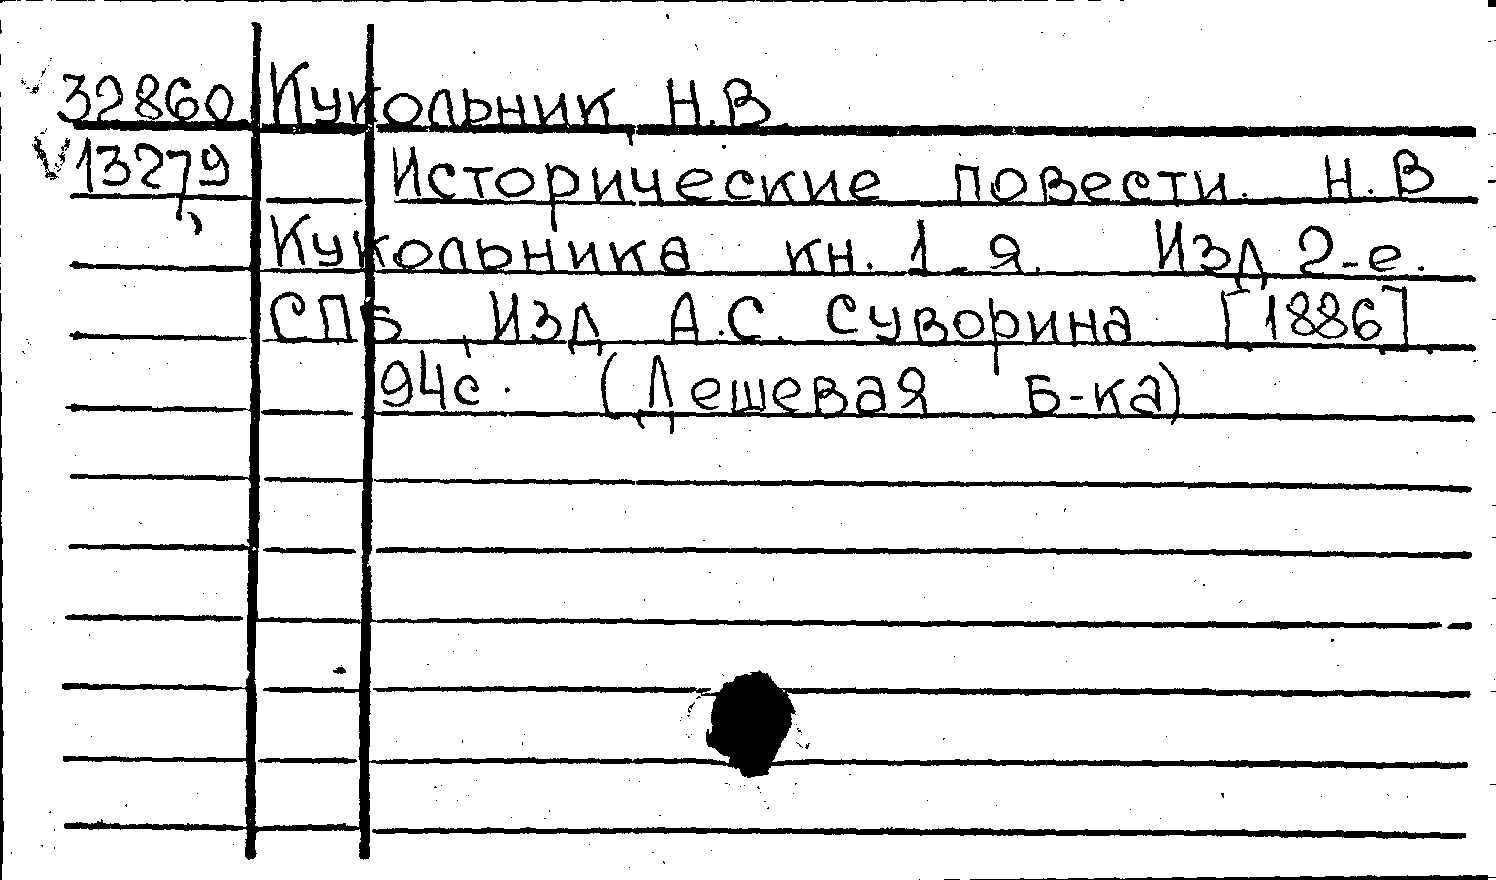 32860 Кукольник, Н.В.
13279 Исторические повести. Н.В
Кукольника кн. 1-я. Изд 2-е.
СПБ, Изд А.С. Суворина [1886]
94с. (Дешевая Б-ка)